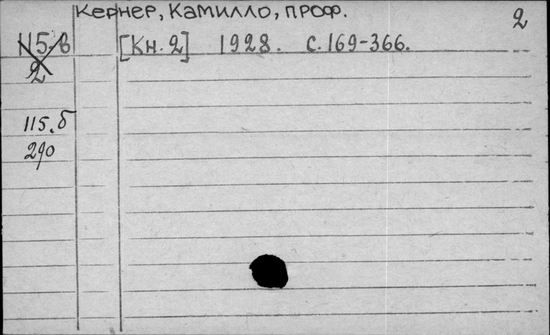 Кернер, Камилло, проф.
2
115.б
2
[Кн. 2] 1928. с. 169-366.
115.б
290